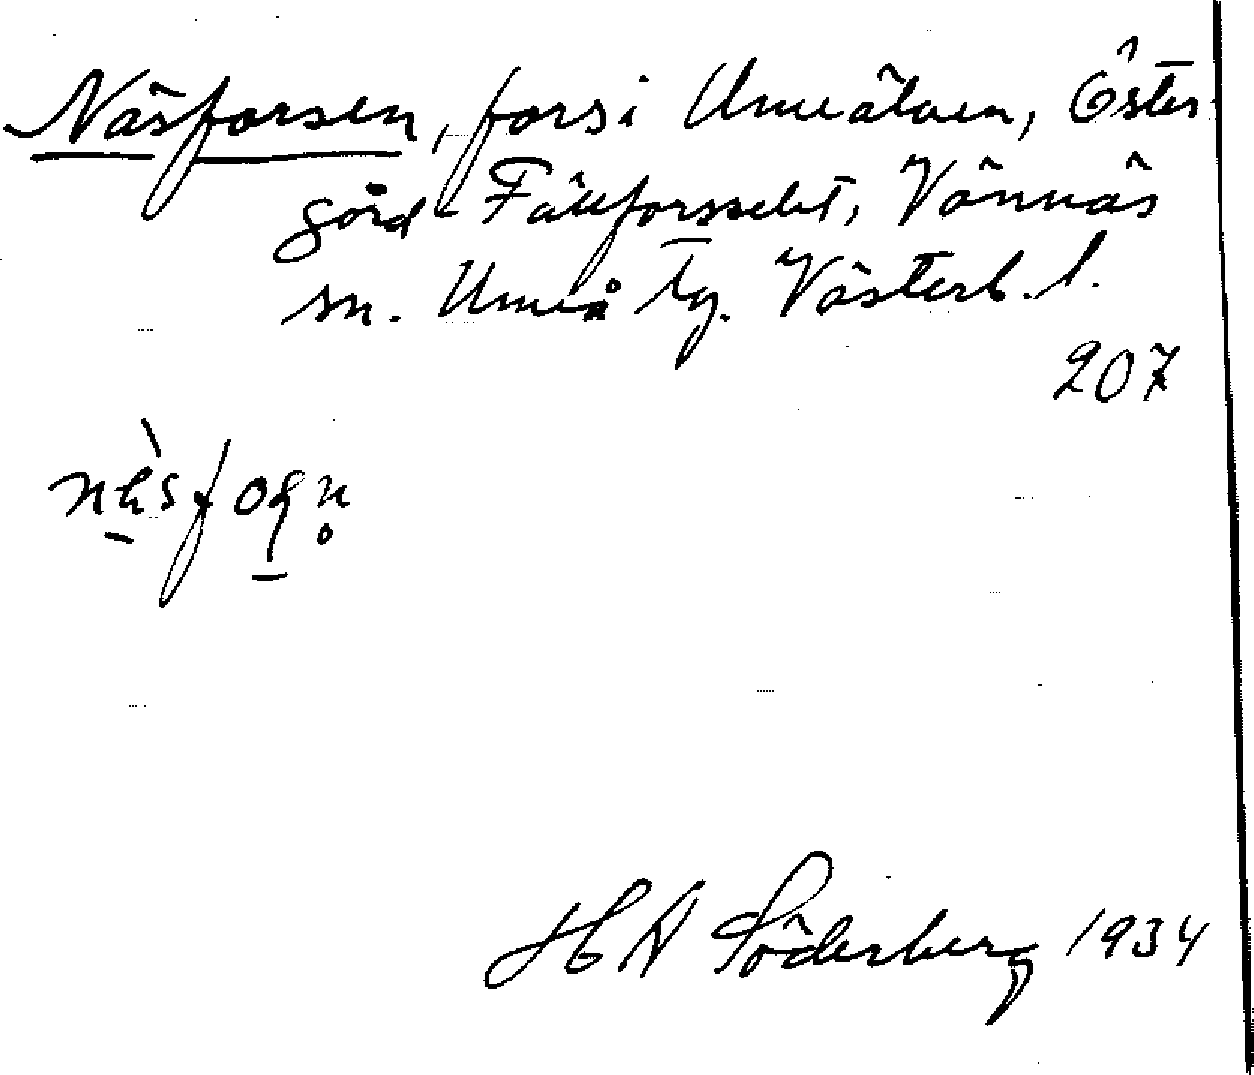 Näsforsen, fors i Umeälven, Öster-
görd - Fällforsselet, Vännäs
sn. Umeå tg. Västerb. l.
207
H A Söderberg 1934